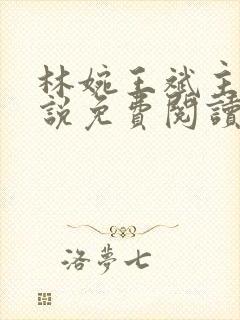 林婉王斌主
說免費閱讀
洛夢七